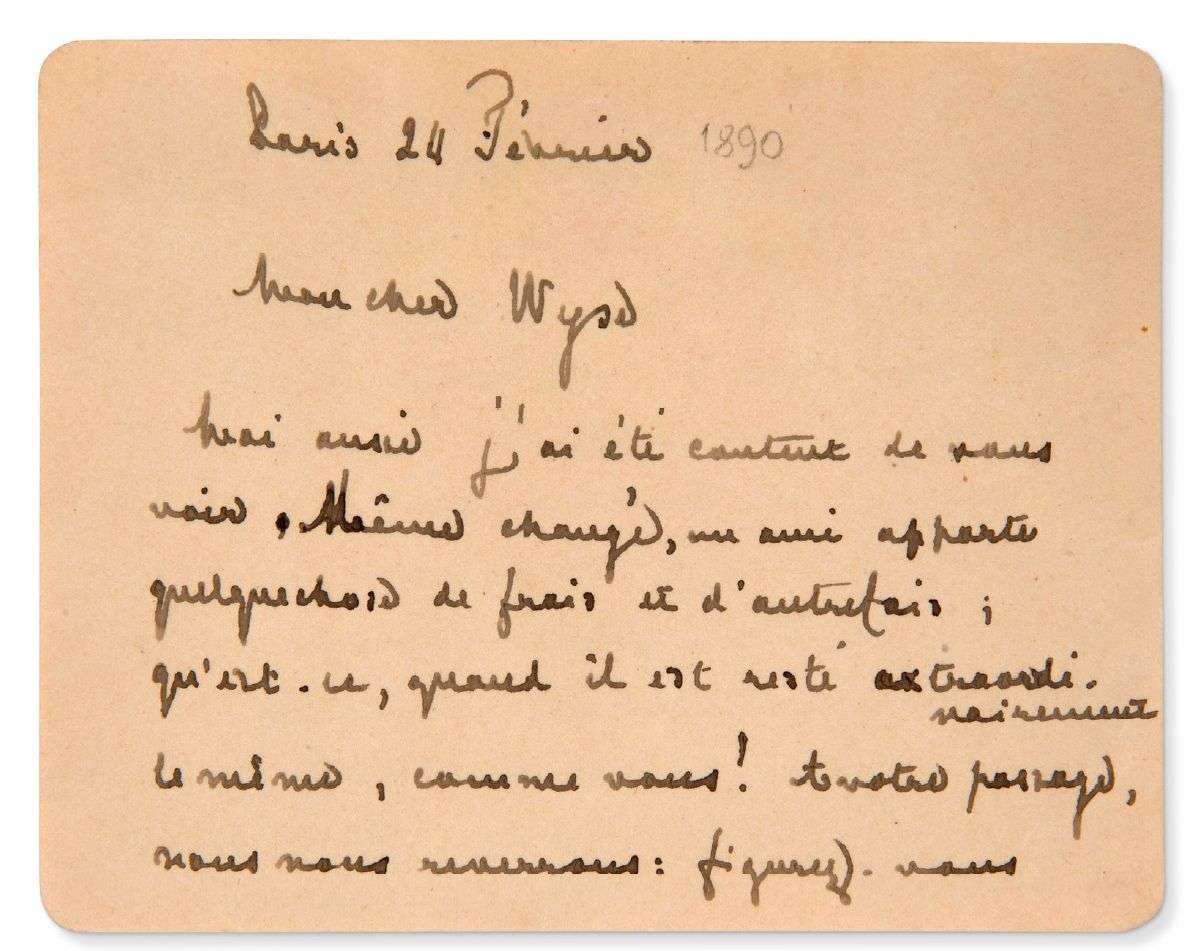 Paris 24 Février 1890
Mon cher Wyse
Moi aussi j'ai été content de vous
voir. Même changé, un ami apporte
quelquechose de frais et d'autrefois ;
qu'est-ce, quand il est resté extraordi-
nairement
le même, comme vous! A votre passage,
nous nous reverrons : figurez-vous